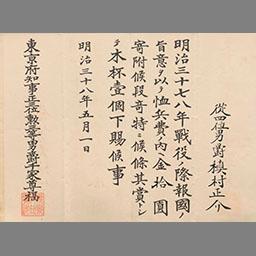 從四位男爵槇村正介
明治三十七八年戰役ノ際報國ノ
旨意ヲ以恤兵費ノ内ヘ金拾圓
寄附候段奇特ニ候條其賞トシ
テ木杯壹個下賜候事
明治三十八年五月一日
東京府知事正四位勲三等男爵千家尊福